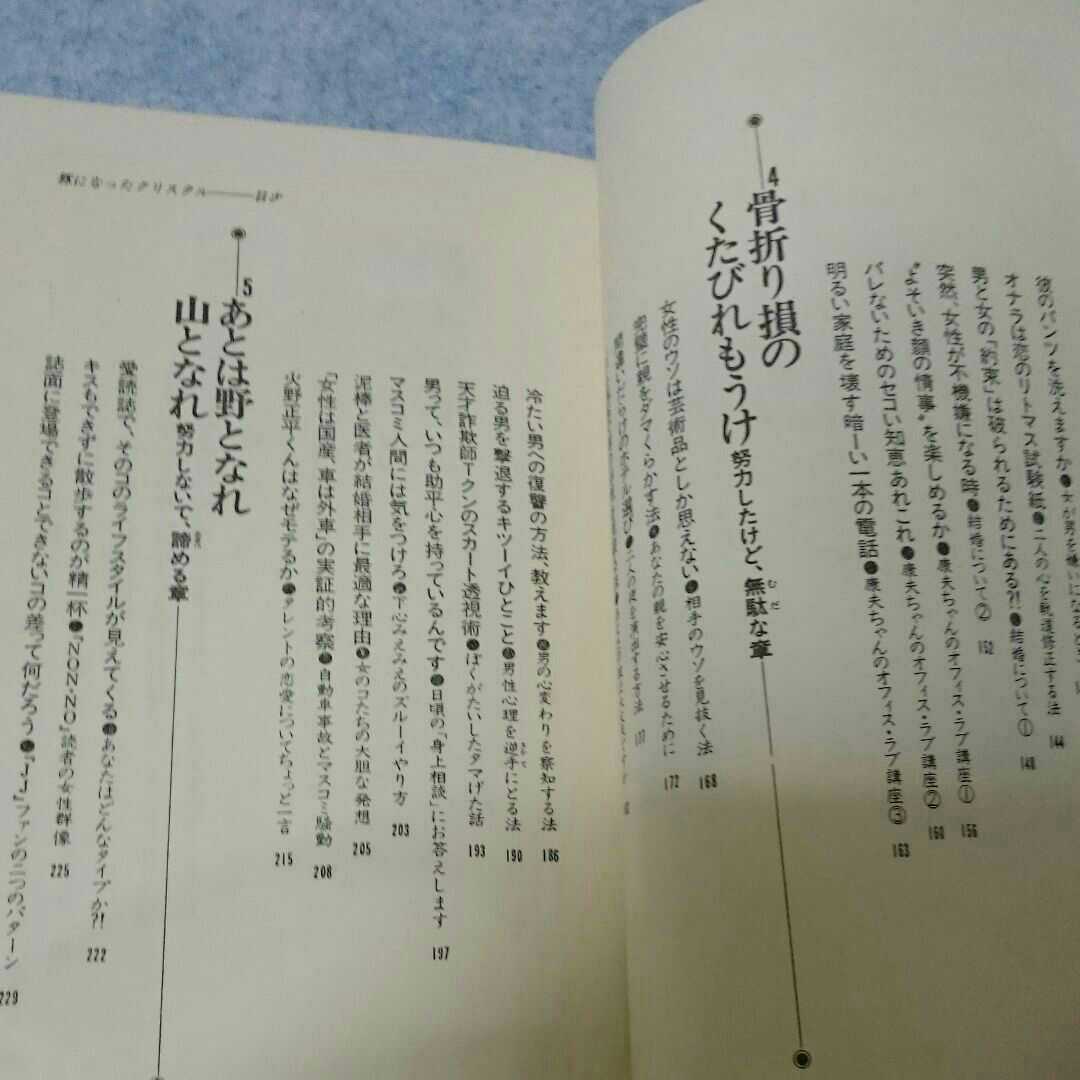 彼のパンツを洗えますか
オナラは恋のリトマス試験紙●二人の心を軌道修正する法 144
男と女の「約束」は破られるためにある?!●結婚について① 148
突然、女性が不機嫌になる時●結婚について② 152
“よそいき顔の情事”を楽しめるか●康夫ちゃんのオフィス・ラブ講座① 156
バレないためのセコい知恵あれこれ●康夫ちゃんのオフィス・ラブ講座② 160
明るい家庭を壊す暗ーい一本の電話●康夫ちゃんのオフィス・ラブ講座③ 163
4 骨折り損の
くたびれもうけ 努力したけど、無駄な章
むだ
女性のウソは芸術品としか思えない●相手のウソを見抜く法 168
完璧に親をダマくらかす法●あなたの親を安心させるために 172
間違いだらけのホテル選び
冷たい男への復讐の方法、教えます●男の心変わりを察知する法 186
迫る男を撃退するキツーイひとこと●男性心理を逆手にとる法 190
さかて
天才詐欺師Tクンのスカート透視術●ぼくがたいしたタマげた話 193
男って、いつも助平心を持っているんです●日頃の「身上相談」にお答えします 197
マスコミ人間には気をつけろ●下心みえみえのズルーイやり方 203
泥棒と医者が結婚相手に最適な理由●女のコたちの大胆な発想 205
「女性は国産、車は外車」の実証的考察●自動車事故とマスコミ騒動 208
火野正平くんはなぜモテるか●タレントの恋愛についてちょっと一言 215
豚になったクリスタル———目次
5 あとは野となれ
山となれ 努力しないで、諦める章
愛読誌で、そのコのライフスタイルが見えてくる●あなたはどんなタイプか?! 222
キスもできずに散歩するのが精一杯●「NON・NO」読者の女性群像 225
誌面に登場できるコとできないコの差って何だろう●「JJ」ファンの二つのパターン 229